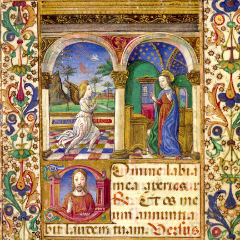 Domine labia
mea aperies. et
R. Et os me
um annuntia
bit laudem tuam. Versus